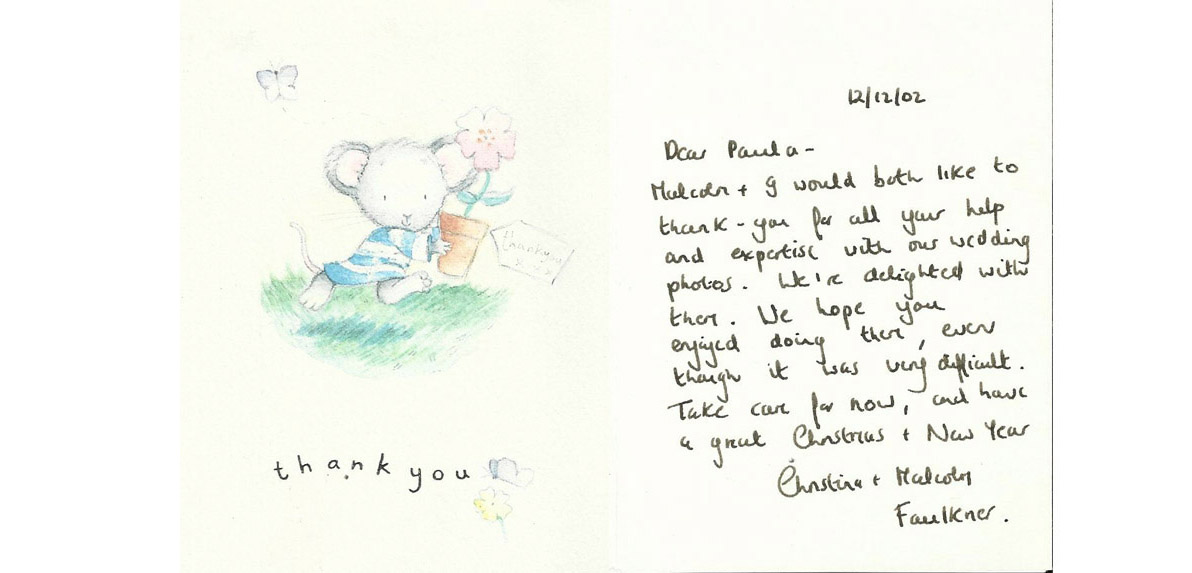 thank you
thank you
12/12/02
Dear Paula -
Malcolm + I would both like to
thank-you for all your help
and expertise with our wedding
photos. We're delighted with
them. We hope you
enjoyed doing them, even
though it was very difficult.
Take care for now, and have
a great Christmas + New Year
Christina + Malcolm
Faulkner.